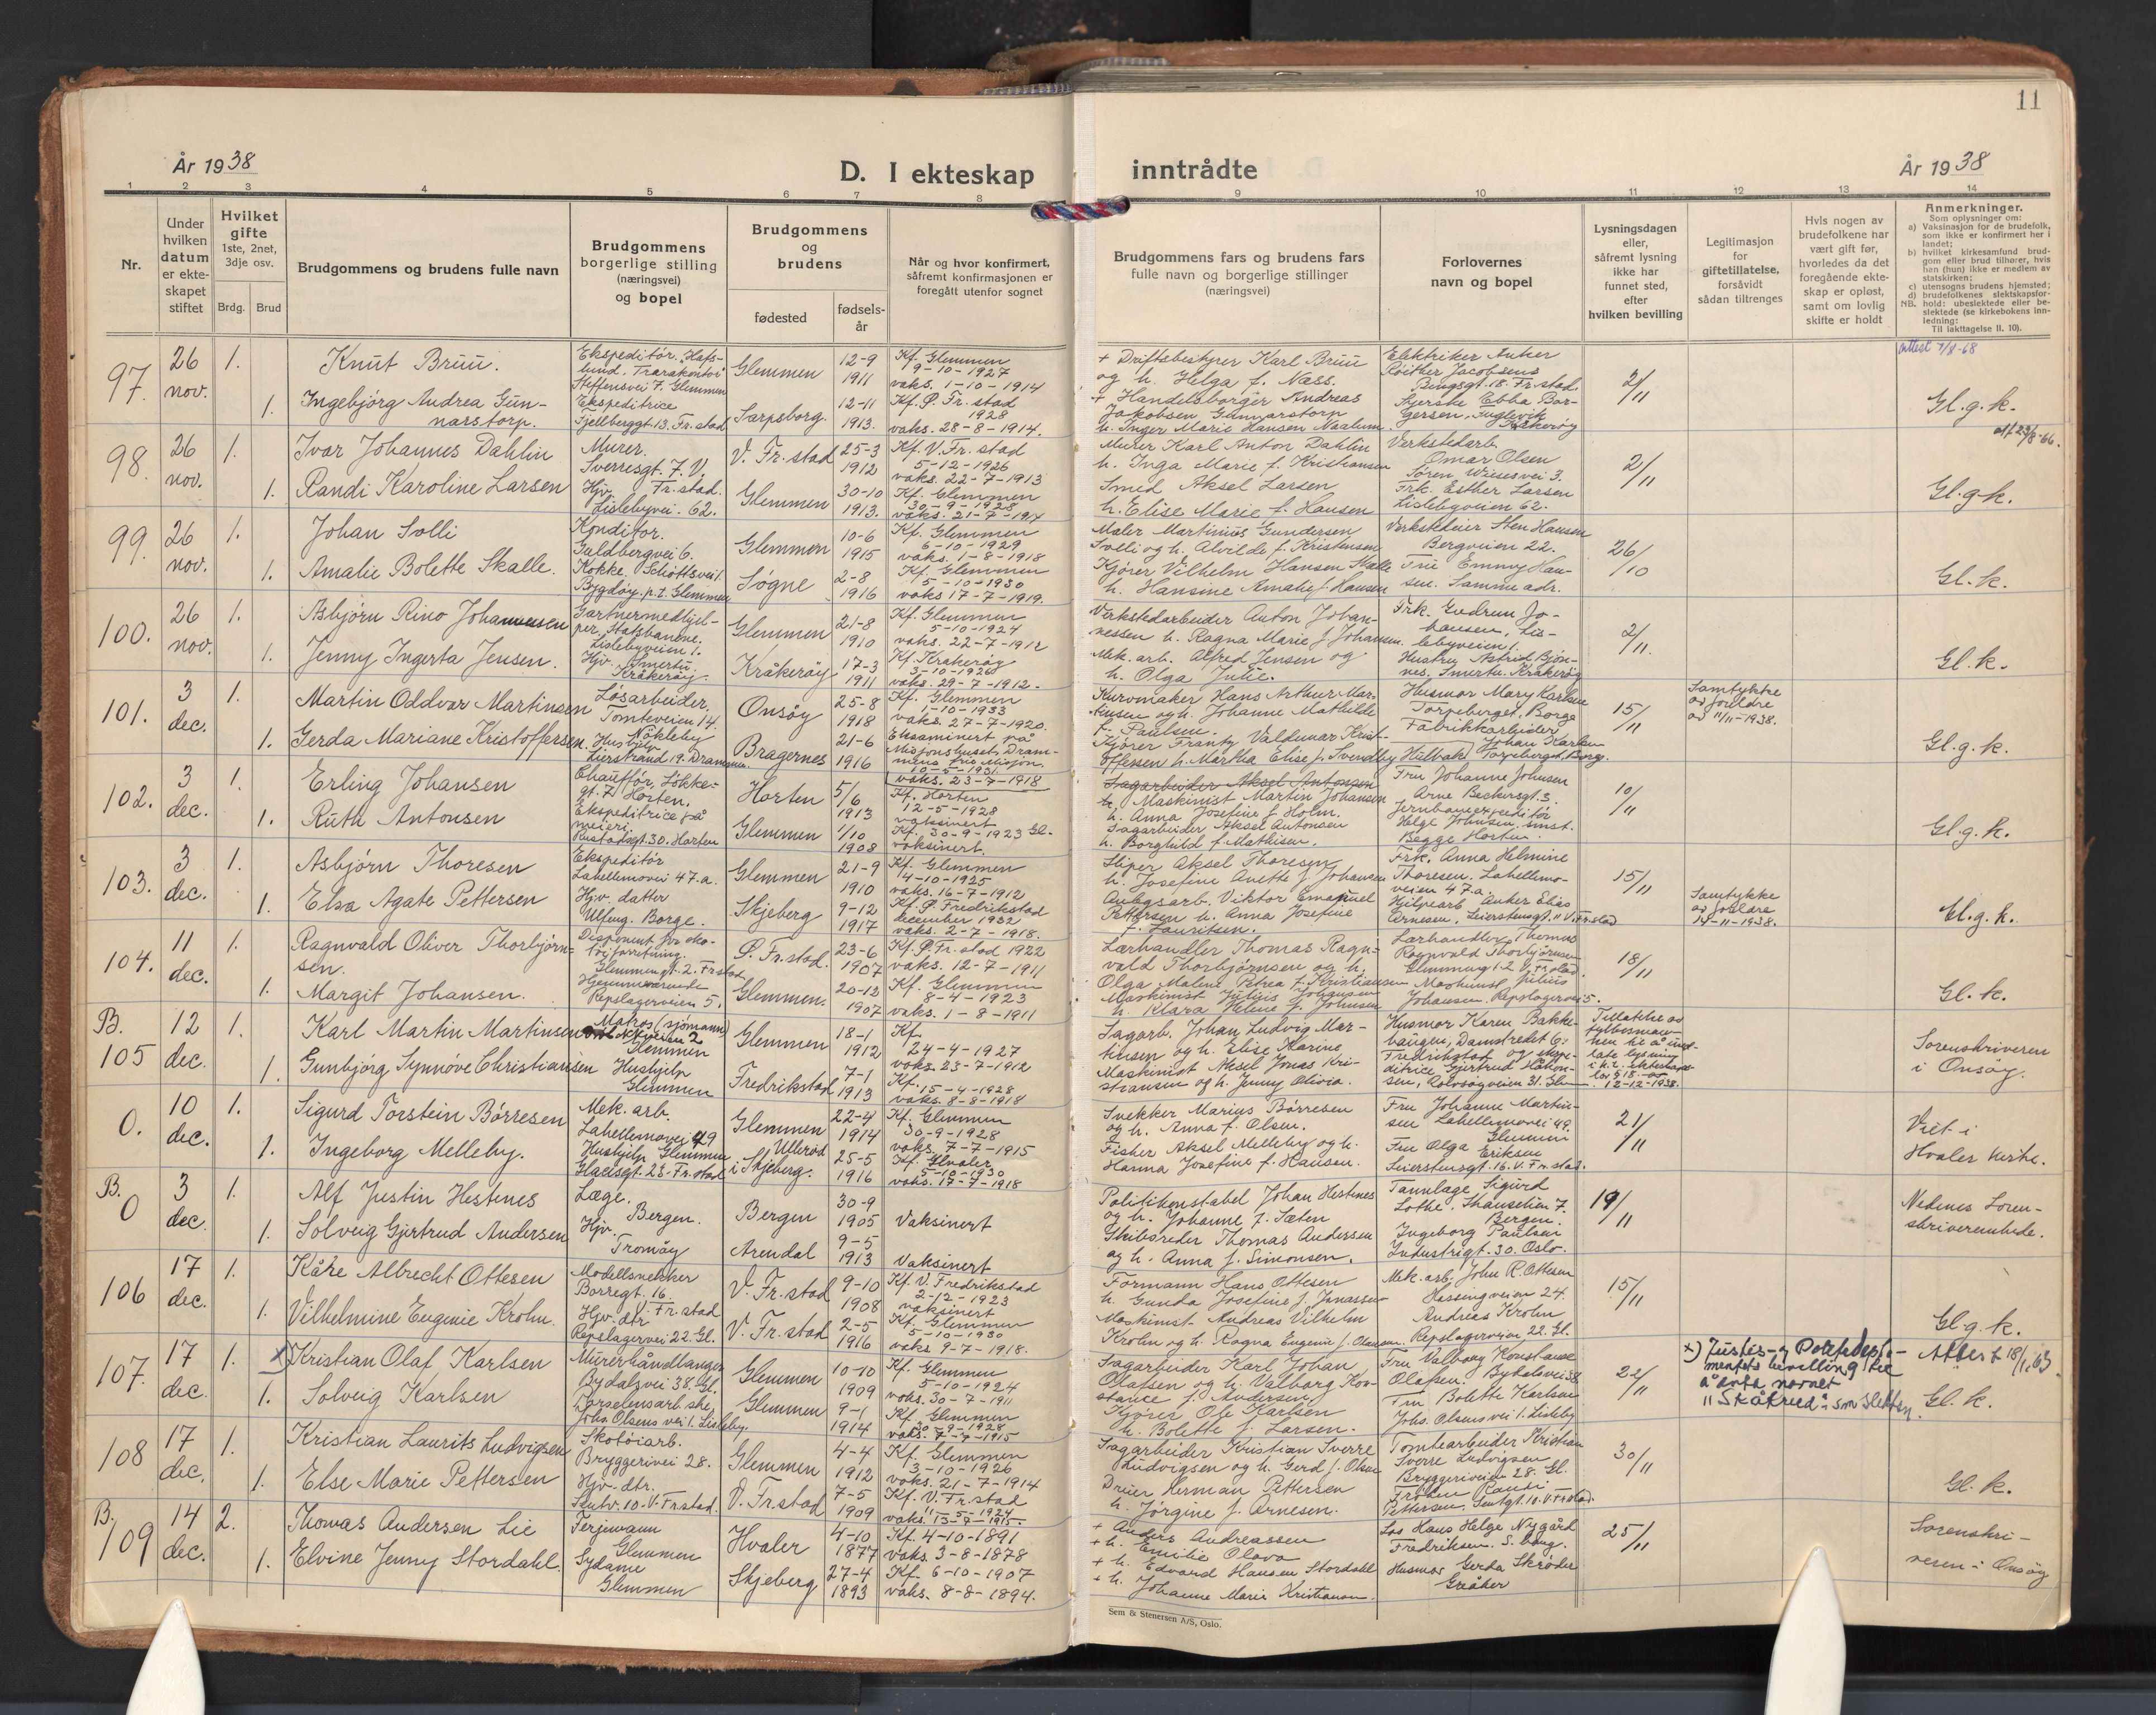 11
År 1938
D. I ekteskap inntrådte
År 1938
1 2 3 4 5 6 7 8 9 10 11 12 13 14
Nr.
Under hvilken datum er ekteskapet stiftet
Hvilket gifte
1ste, 2net, 3dje osv.
Brdg. Brud
Brudgommens og brudens fulle navn
Brudgommens borgerlige stilling (næringsvei) og bopel
Brudgommens og brudens
fødested
fødselsår
Når og hvor konfirmert, såfremt konfirmasjonen er foregått utenfor sognet
Brudgommens fars og brudens fars fulle navn og borgerlige stillinger (næringsvei)
Forlovernes navn og bopel
Lysningsdagen eller, såfremt lysning ikke har funnet sted, efter hvilken bevilling
Legitimasjon for giftetillatelse, forsåvidt sådan tiltrenges
Hvis nogen av brudefolkene har vært gift før, hvorledes da det foregående ekteskap er opløst, samt om lovlig skifte er holdt
Anmerkninger.
Som oplysninger om:
a) Vaksinasjon for de brudefolk, som ikke er konfirmert her i landet;
b) hvilket kirkesamfund brudgom eller brud tilhører, hvis han (hun) ikke er medlem av statskirken;
c) utensogns brudens hjemsted;
d) brudefolkenes slektskapsforhold: ubeslektede eller beslektede (se kirkebokens innledning:
NB. Til iakttagelse II. 10).
97. 26 nov. 1. Knut Bruu.
Ekspeditör. Hafslund. Trarakontoi
Steffensvei 7. Glemmen
Glemmen 12-9 1911
Kf. Glemmen
9-10-1927
vaks. 1-10-1914
1. Ingebjörg Andrea Gunnarstorp.
Ekspeditrice
Fjellberggt. 13. Fr. stad
Sarpsborg. 12-11 1913.
Kf. P. Fr. stad
1928
vaks. 28-8-1914.
+ Driftebestyrer Karl Bruu
og h. Helga f. Næss.
+ Handelsborger Andreas
Jakobsen Gunnarstorp
h. Inger Marie Hansen Naalum.
Elektriker Anker
Röither Jacobsens
Bingsgt. 18. Fr. stad
2/11
attest 1/8-68
Gl. g. k.
98. 26 nov. 1. Ivar Johannes Dahlin
Murer.
Sverresgt. 7. V. Fr. stad.
V. Fr. stad 25-3 1912
Kf. V. Fr. stad
5-12-1926
vaks. 22-7-1913
1. Randi Karoline Larsen
Hjv.
Lislebyvei. 62.
Glemmen 30-10 1913.
Kf. Glemmen
30-9-1928
vaks. 21-7-1914
Murer Karl Anton Dahlin
h. Inga Marie f. Kristiansen
Smed Aksel Larsen
h. Elise Marie f. Hansen
Verkstedarb.
Omar Olsen
Sören Wiesesvei 3.
Frk. Esther Larsen
Lislebyveien 62.
2/11
att 23/8-66.
Gl. g. k.
99. 26 nov. 1. Johan Solli
Konditor.
Guldbergvei 6.
Glemmen 10-6 1915
Kf. Glemmen
6-10-1929
vaks. 1-8-1918
1. Amalie Bolette Skalle.
Kokke. Schöttsvei 1.
Bygdöy. p.t. Glemmen
Søgne 2-8 1916
Kf. Glemmen
5-10-1930
vaks 17-7-1919.
Maler Martinius Gundersen
Solli og h. Alvilde f. Kristensen
Kjörer Vilhelm Hansen Skalle
h. Hansine Amalie f. Hansen
Verkstedeier Sten Hansen
Bergveien 22.
Frue Emmy Hansen. Samme adr.
26/10
Gl. k.
100. 26 nov. 1. Asbjörn Rino Johannesen
Gartnermedhjelper, Statsbanene.
Lislebyveien 1.
Glemmen 21-8 1910
Kf. Glemmen
5-10-1924
vaks. 22-7-1912
1. Jenny Ingerta Jensen.
Hjv. Smertu.
Kråkeröy.
Kråkeröy 17-3 1911
Kf. Kråkeröy
3-10-1926
vaks. 29-7-1912.
Verkstedarbeider Anton Johannessen h. Ragna Marie f. Johansen.
Mek. arb. Alfred Jensen og
h. Olga Julie.
Frk. Gudrun Johansen, Lislebyveien 1.
Hustru Astrid Björnes. Smertu. Kråkeröy
2/11.
Gl. k.
101. 3 dec. 1. Martin Oddvar Martinsen
Løsarbeider.
Tomteveien 14.
Onsöy 25-8 1918
Kf. Glemmen
1-10-1933
vaks. 27-7-1920.
1. Gerda Mariane Kristoffersen.
Nökleby
Hushjelp
Lierstrand 19. Drammen.
Bragernes 21-6 1916
Eksaminert på
Misjonshuset, Drammens frie Misjon.
10-5-1931.
vaks. 23-7-1918
Kurvmaker Hans Arthur Martinsen og h. Johanne Mathilde
f. Paulsen.
Kjörer Frantz Valdemar Kristoffersen h. Martha Elise f. Svendby
Husmor Mary Karlsen
Torpeberget, Borge
Fabrikkarbeider
Johan Karlsen
15/11
Samtykke
av foreldre
av 11/11-1938.
Gl. g. k.
102. 3 dec. 1. Erling Johansen
Chaufför, Lökkegt. 7. Horten.
Horten 5/6 1913
Kf. Horten
12-5-1928
vaksinert
1. Ruth Antonsen
Ekspeditrice på
meieri
Rustadsgt. 30. Horten
Glemmen 1/10 1908
Kf. 30-9-1923 Gl.
vaksinert.
Sagarbeider Aksel Antonsen
Maskinist Martin Johansen
h. Anna Josefine f. Holm.
Sagarbeider Aksel Antonsen
h. Borghild f. Mathisen.
Fru Johanne Johnsen
Arne Beckersgt. 3.
Jernbaneexpeditör
Helge Johnsen, smst.
Begge Horten.
10/11
Gl. g. k.
103. 3 dec. 1. Asbjörn Thoresen
Ekspeditör
Lahellemovei 47. a.
Glemmen 21-9 1910
Kf. Glemmen
4-10-1925
vaks. 16-7-1912
1. Elsa Agate Pettersen
Hjv. datter
Ulfeng. Borge.
Skjeberg 9-12 1917
Kf. P. Fredrikstad
december 1932
vaks. 2-7-1918.
Sliper Aksel Thoresen
h. Josefine Anette f. Johansen
Anlegsarb. Viktor Emanuel
Pettersen h. Anna Josefine
f. Lauritsen.
Frk. Anna Helmine
Thoresen. Lahellemoveien 47 a.
Hjelpearb. Anker Elias
Arnesen, Leierstensgt. 11 V. Fr. stad
15/11
Samtykke
av foreldre
14-11-1938.
Gl. g. k.
104. 11 dec. 1. Ragnvald Oliver Thorbjörnsen.
Disponent for skotöiforretning.
Glemmengt. 2. Fr. stad
P. Fr. stad. 23-6 1907
Kf. P. Fr. stad 1922
vaks. 12-7-1911
1. Margit Johansen.
Hjemmeværende
Repslagerveien 5.
Glemmen. 20-12 1907
Kf. Glemmen
8-4-1923
vaks. 1-8-1911
Lærhandler Thomas Ragnvald Thorbjörnsen og h.
Olga Malene Petrea f. Kristiansen
Maskinist Julius Johansen
h. Klara Heline f. Johnsen
Lærhandler Thomas
Ragnvald Thorbjörnsen
Glemmengt. 2 V. Fr. stad.
Maskinist Julius
Johansen. Repslagervei 5.
18/11
Gl. k.
B. 105 12 dec. 1. Karl Martin Martinsen
Matros (sjömann)
Glemmen
Glemmen 18-1 1912
Kf.
24-4-1927
vaks. 23-7-1912
1. Gunbjörg Synnöve Christiansen
Hushjelp
Glemmen
Fredrikstad 7-1 1913
Kf. 15-4-1928
vaks. 8-8-1918
Sagarb. Johan Ludvig Martinsen og h. Elise Karine
Maskinist Aksel Jonas Kristiansen og h. Jenny Olivia.
Husmor Karen Bakkehaugen, Damstredet 6.
Fredrikstad og ekspeditrice Gjertrud Håkonsen, Rolvsöyveien 31. Glemmen
Tillatelse av
fylkesmannen til å unnlate lysning
12-12-1938.
Sorenskriveren
i Onsöy.
0. 10 dec. 1. Sigurd Torstein Börresen
Mek. arb.
Lahellemovei 49
Glemmen 22-4 1914
Kf. Glemmen
30-9-1928
vaks. 7-7-1915
1. Ingeborg Melleby.
Hushjelp Glemmen
Glacisgt. 23. Fr. stad
Ullerød i Skjeberg. 25-5 1916
Kf. Hvaler
5-10-1930
vaks. 17-7-1918
Snekker Marius Börresen
og h. Anna f. Olsen.
Fisher Aksel Melleby og h.
Hanna Josefine f. Hansen.
Fru Johanne Martinsen Lahellemovei 49.
Glemmen
Fru Olga Eriksen
Leierstensgt. 16. V. Fr. stad.
21/11
Viet i
Hvaler kirke.
B. 0 3 dec. 1. Alf Justin Hestenes
Læge.
Bergen.
Bergen 30-9 1905 Vaksinert
1. Solveig Gjertrud Andersen
Hjv.
Tromöy
Arendal 9-5 1913 Vaksinert
Politikonstabel Johan Hestenes
og h. Johanne f. Sæten
Skibsreder Thomas Andersen
og h. Anna f. Simonsen.
Tannlæge Sigurd
Lothe.
Bergen.
Ingeborg Paulsen
Industrigt. 30. Oslo.
19/11
Nedenes Sorenskriverembede.
106 17 dec. 1. Kåre Albrecht Ottesen
Modellsnekker
Borregt. 16.
V. Fr. stad
V. Fr. stad 9-10 1908
Kf. V. Fredrikstad
2-12-1923
vaksinert
1. Vilhelmine Eugenie Krohn.
Hjv. dtr.
Repslagervei 22. Gl.
V. Fr. stad 2-5 1916
Kf. Glemmen
5-10-1930
vaks 9-7-1918.
Formann Hans Ottesen
h. Gunda Josefine f. Jonassen
Maskinist Andreas Vilhelm
Krohn og h. Ragna Eugenie f. Olausen.
Mek. arb. John R. Ottesen
Hassingveien 24.
Andreas Krohn
Repslagerveien 22. Gl.
15/11
Gl. g. k.
107. 17 dec. 1. x Kristian Olaf Karlsen
Murerhåndlanger
Bydalsvei 38. Gl.
Glemmen 10-10 1909
Kf. Glemmen
5-10-1924
vaks. 30-7-1911
1. Solveig Karlsen
Johs. Olsens vei 1. Lisleby.
Glemmen 9-1 1914
Kf. Glemmen
30-9-1928
vaks. 7-7-1915
Sagarbeider Karl Johan
Olafsen og h. Valborg Konstance f. Andersen
Kjörer Ole Karlsen
h. Bolette f. Larsen.
Fru Valborg Konstanse
Olafsen. Bydalsvei 38
Fru Bolette Karlsen
Johs. Olsens vei 1. Lisleby
22/11
x) Justis- og Politidepartementets bevilling til
å anta navnet
"Skåkrud" som slektsn.
Attest 18/1.63.
Gl. k.
108 17 dec. 1. Kristian Laurits Ludvigsen
Skotöiarb.
Bryggerivei 28.
Glemmen 4-4 1912
Kf. Glemmen
3-10-1926
vaks. 21-7-1914
1. Else Marie Pettersen
Hjv. dtr.
V. Fr. stad.
V. Fr. stad 7-5 1909
Kf. V. Fr. stad
11-5-1924
vaks. 13-7-1915.
Sagarbeider Kristian Sverre
Ludvigsen og h. Gerd f. Olsen
Dreier Herman Pettersen
h. Jörgine f. Arnesen.
Tomtearbeider Kristian
Sverre Ludvigsen
Bryggeriveien 28. Gl.
Fröken Randi
Pettersen.
30/11
Gl. k.
B. 109 14 dec. 2. Thomas Andersen Lie
Ferjemann
Glemmen
Hvaler 4-10 1877
Kf. 4-10-1891
vaks. 3-8-1878
1. Elvine Jenny Stordahl
Sydame
Glemmen
Skjeberg 27-4 1893
Kf. 6-10-1907
vaks. 8-8-1894.
+ Anders Andreassen
+ h. Emilie Olava
+ Edvard Hansen Stordahl
+ h. Johanne Marie Kristiansen.
Los Hans Helge Nygård
Fredriksen. S. borg.
Husmor Gerda Skröder
Greåker
25/11
Sorenskriveren i Onsöy
Sem & Stenersen A/S, Oslo.